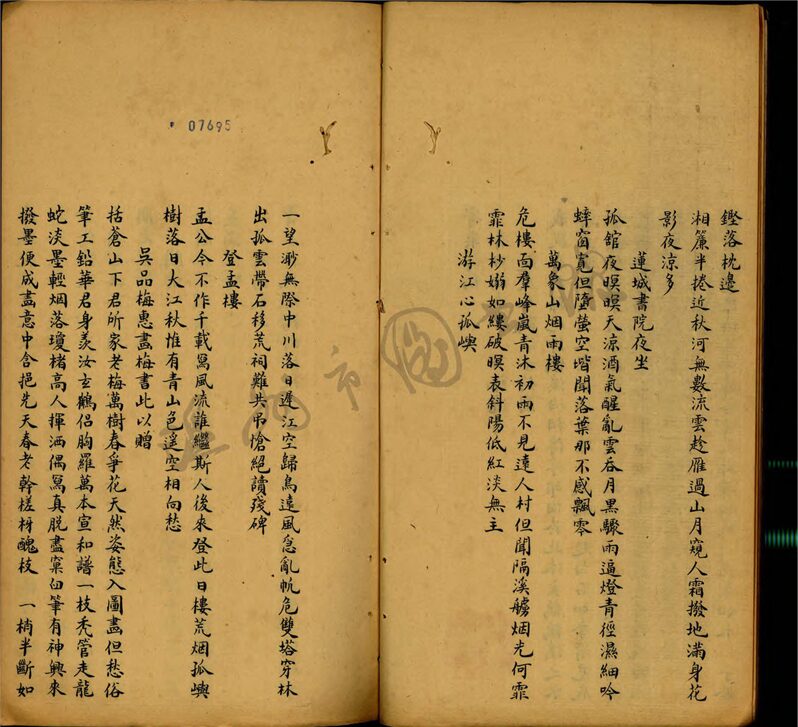 鏗落枕邊
湘簾半捲近秋河無數流雲趁雁過山月窺人霜撥地滿身花
影夜涼多
蓮城書院夜坐
孤舘夜暝暝天涼酒氣醒亂雲吞月黑驟雨逼燈青徑濕細吟
蟀窗寬但墮螢空堦聞落葉那不感飄零
萬象山烟雨樓
危樓面羣峰嵐青沐初雨不見遠人村但聞隔溪艣烟光何霏
霏林杪嫋如縷破暝表斜陽低紅淡無主
游江心孤嶼
07695
一望渺無際中川落日遲江空歸鳥遠風急亂帆危雙塔穿林
出孤雲帶石移荒祠難共弔愴絕讀殘碑
登孟樓
孟公今不作千載寫風流誰繼斯人後來登此日樓荒烟孤嶼
樹落日大江秋惟有青山色遙空相向愁
吳品梅惠畫梅書此以贈
括蒼山下君所家老梅萬樹春爭花天然姿態入圖畫但愁俗
筆工鉛華君身羨汝玄鶴侶胸羅萬本宣和譜一枝禿管走龍
蛇淡墨輕烟落瓊楮高人揮洒偶寫真脫盡窠臼筆有神興來
撥墨便成畫意中含挹先天春老幹槎枒醜枝 一梢半斷如